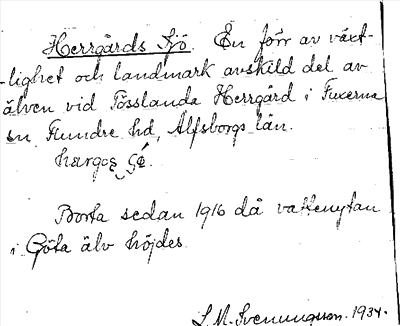 Herrgårds Sjö. En förr av växt-
-lighet och landmark avskild del av
älven vid Tösslanda Herrgård i Fuxerna
sn Flundre hd, Älfsborgs län.
Borta sedan 1916 då vattenytan
i Göta älv höjdes.
L. M. Svenungsson. 1934.